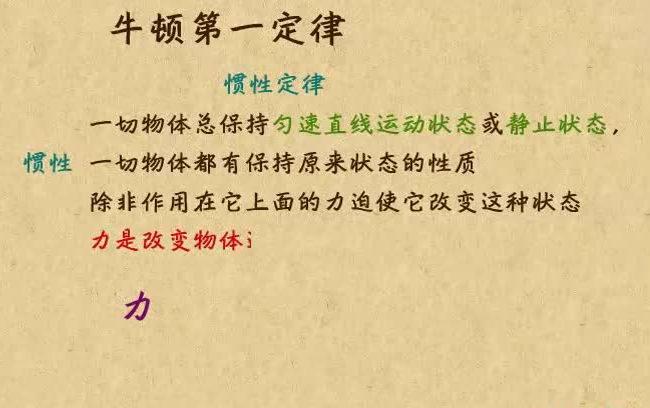 牛顿第一定律
惯性定律
一切物体总保持匀速直线运动状态或静止状态，
惯性 一切物体都有保持原来状态的性质
除非作用在它上面的力迫使它改变这种状态
力是改变物体
力